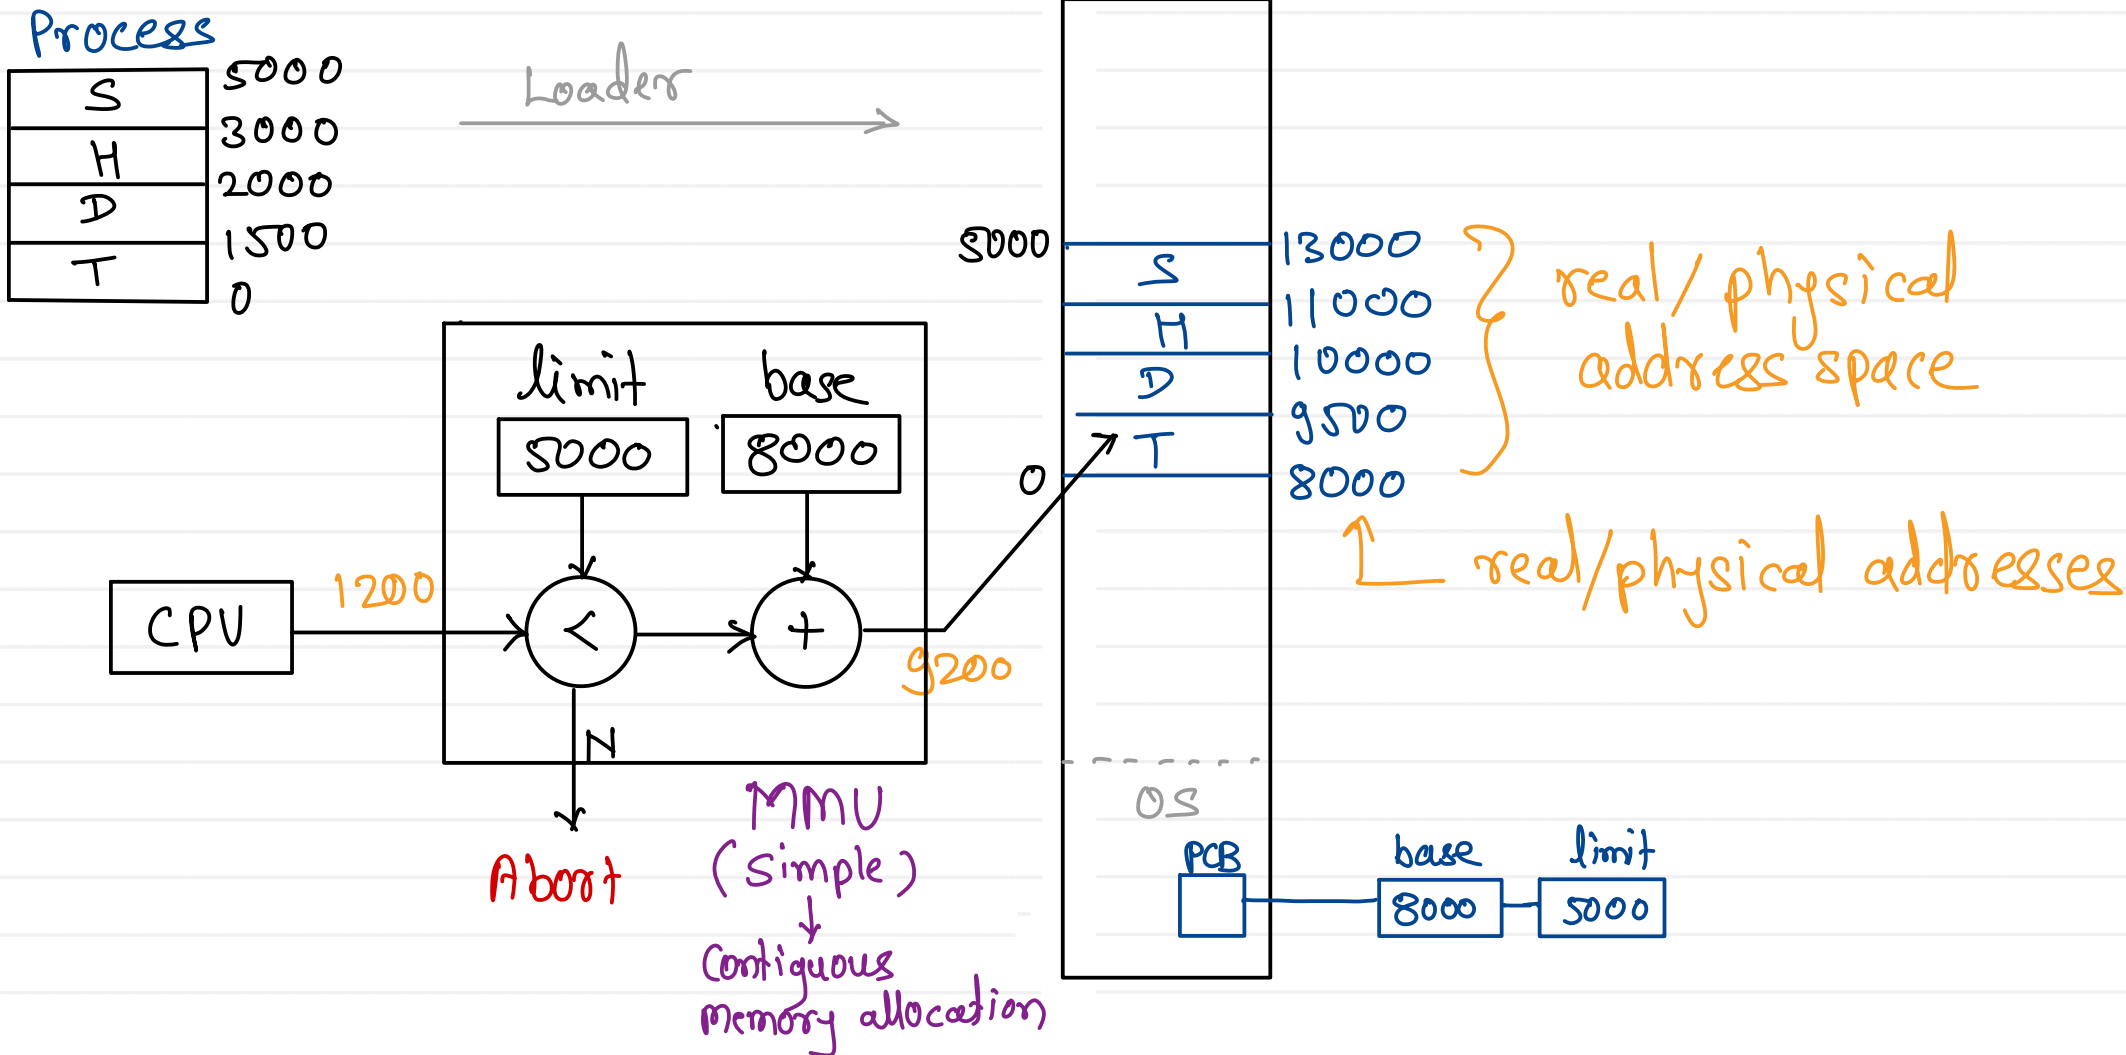 Process
S
5000
3000
H
2000
D
1500
T
0
Loader
limit
base
5000
8000
CPU
1200
<
+
9200
N
Abort
MMU
(Simple)
Contiguous
memory allocation
5000
0
S
H
D
T
13000
11000
10000
9500
8000
real/physical
address space
real/physical addresses
OS
PCB
base
limit
8000
5000